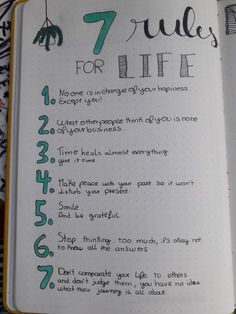 7 rules
FOR LIFE
1. No one is in charge of your happiness.
Except you!
2. What other people think of you is none
of your business.
3. Time heals almost everything
give it time
4. Make peace with your past so it won't
disturb your present.
5. Smile
And be grateful
6. Stop thinking too much, it's okay not
to know all the answers
7. Don't comparate your life to others
and don't judge them, you have no idea
what their journey is all about.